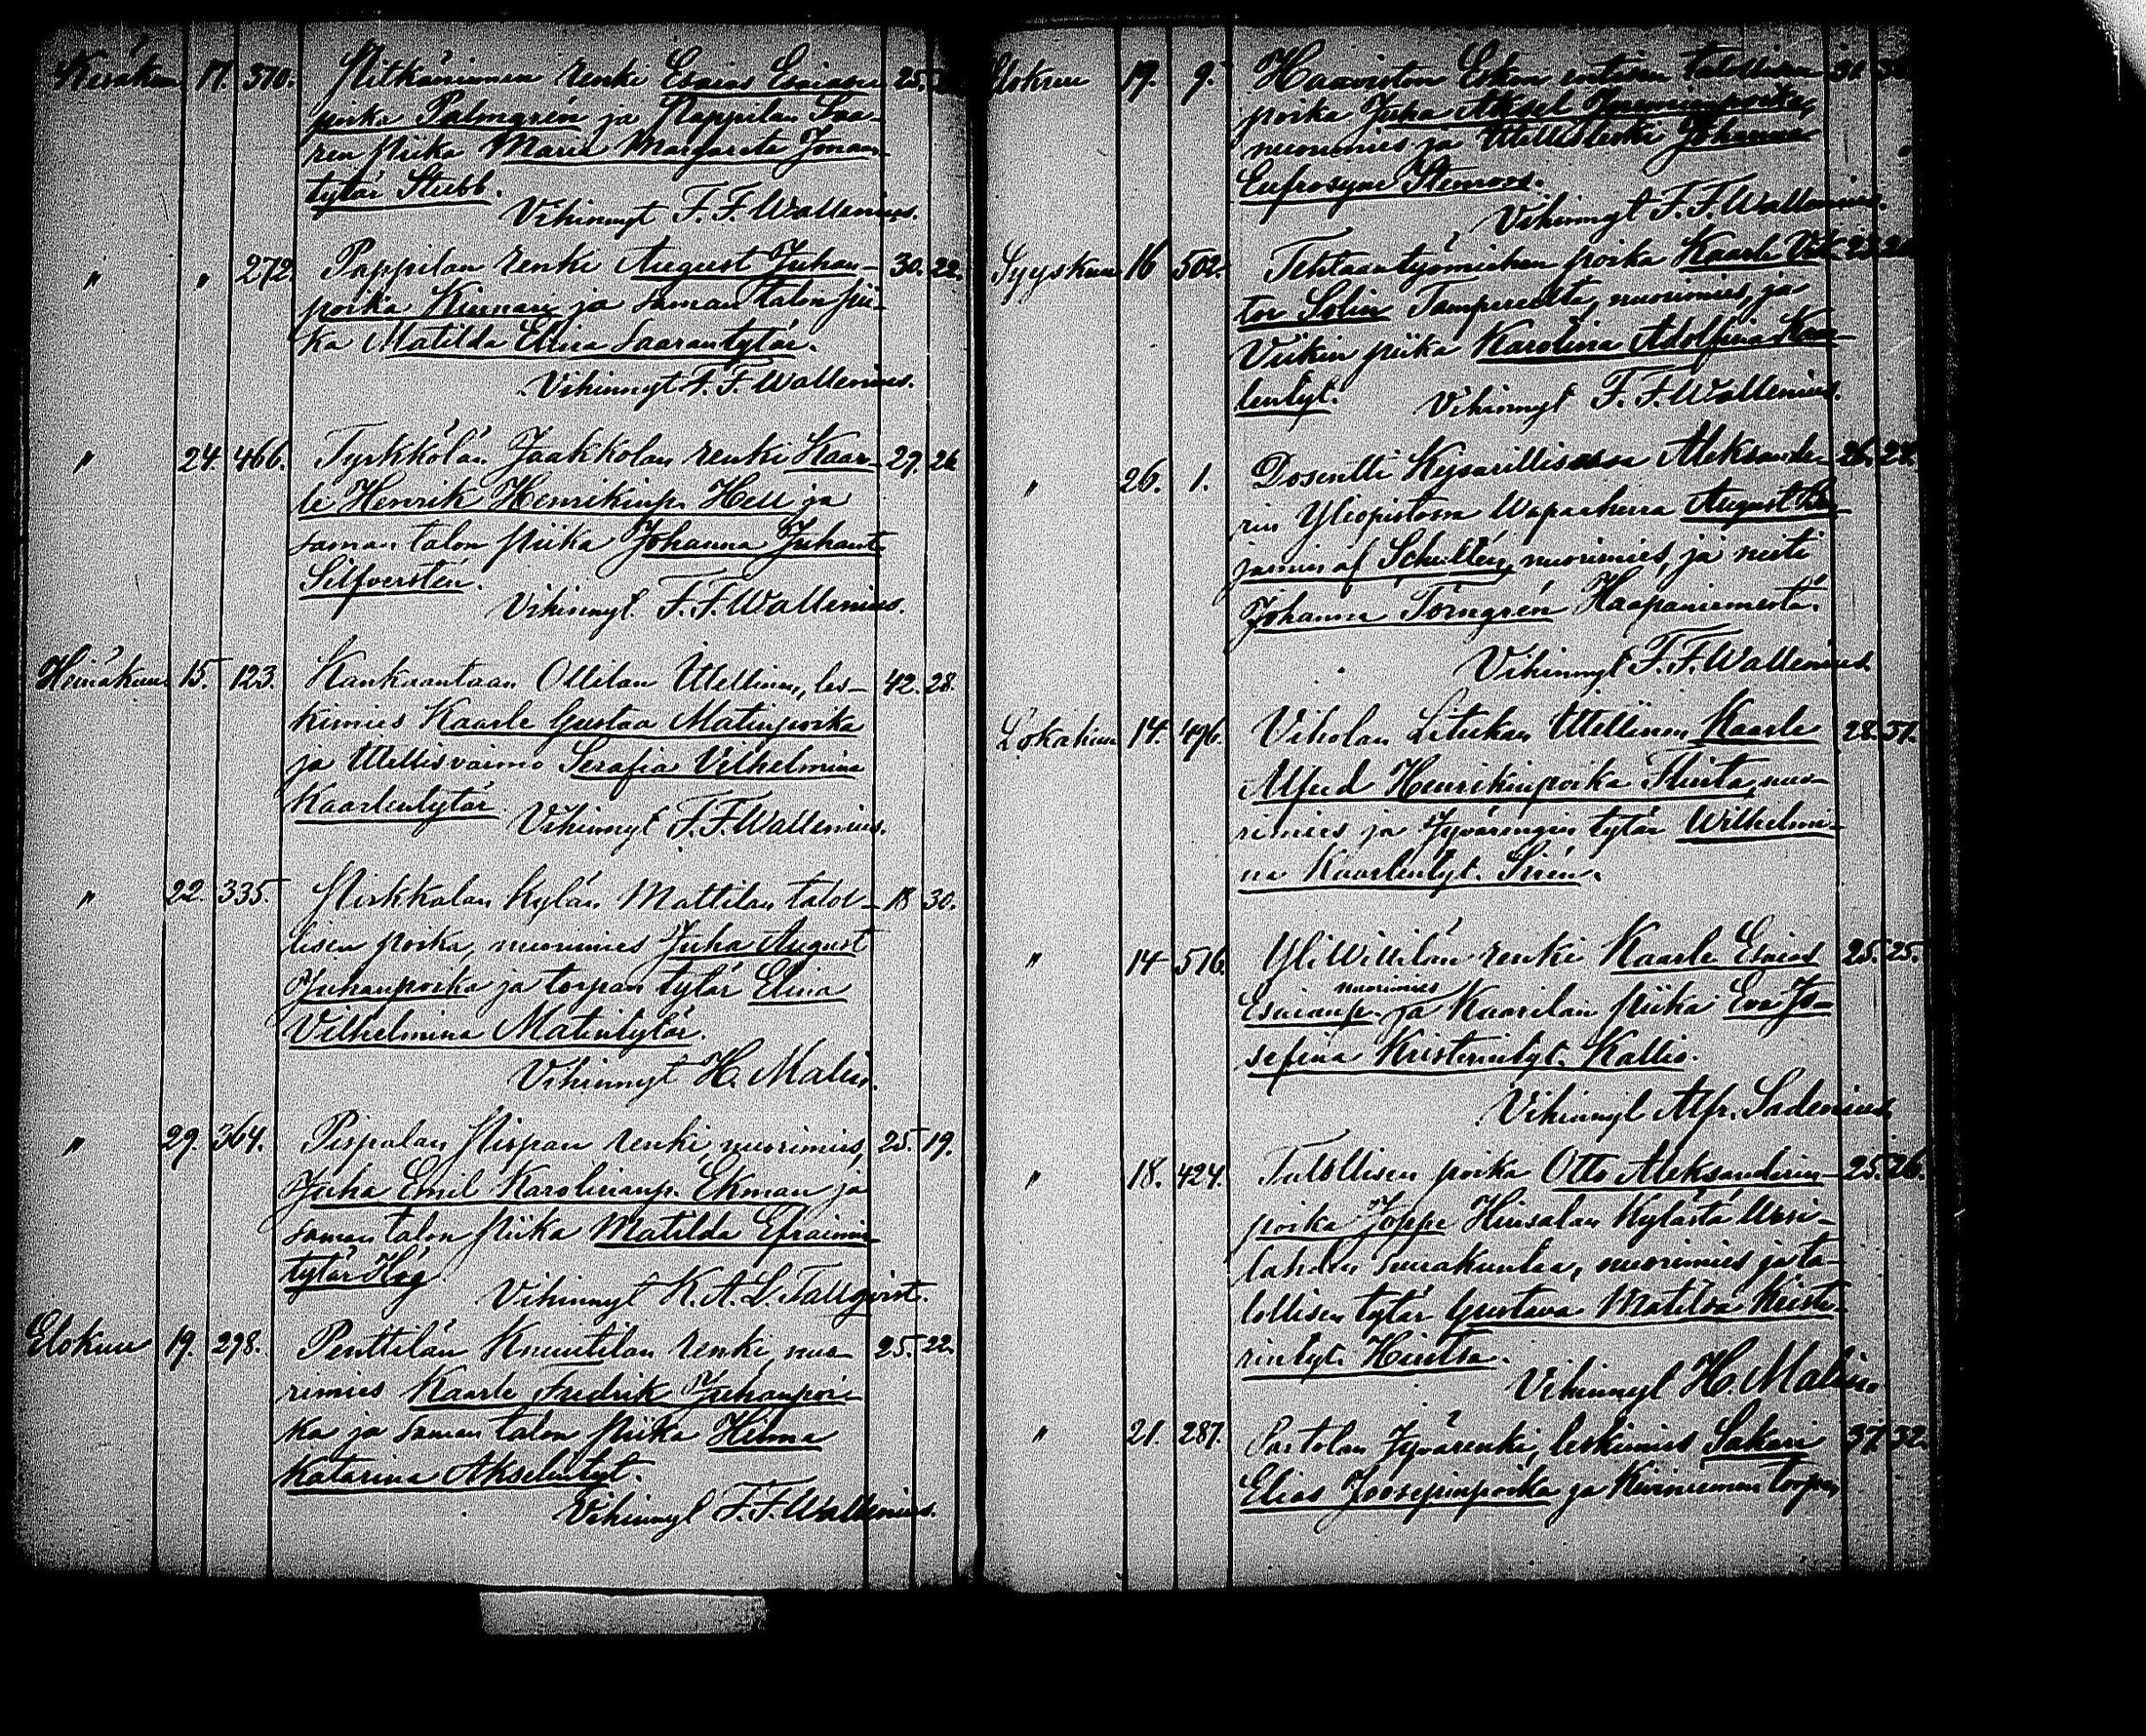 Kesäkuu 17. 510. Pitkäniemen renki Esaias Esaian- 25.
poika Palmgrén ja Pappilan Saa-
ren piika Maria Margareta Joman-
tytär Stubb.
Vihinnyt F. F. Wallenius.
" " 272 Pappilan renki August Juhan- 30. 22.
poika Kinnari ja saman talon pii-
ka Matilda Elina Saarantytär.
Vihinnyt F. F. Wallenius.
" 24. 466. Tyrkkölän Jaakkolan renki Kaar- 27. 26
le Henrik Henrikinp. Hell ja
saman talon piika Johanna Juhant.
Silfverstén.
Vihinnyt F. F. Wallenius.
Heinäkuu 15. 123. Kankaantaan Ollilan Itellinen, les- 42. 28.
kimies Kaarle Gustaa Matinpoika
ja Itellisvaimo Serafia Vilhelmina
Kaarlentytär
Vihinnyt F. F. Wallenius.
" 22. 335. Pirkkalan kylän Mattilan talol- 18 30.
lisen poika, nuorimies Juha August
Juhanpoika ja torpan tytär Elina
Vilhelmina Matintytär.
Vihinnyt H. Malin.
" 29. 364. Pispalan Pispan renki, nuorimies, 25. 19.
Juha Emil Karolinanp. Ekman ja
saman talon piika Matilda Efraimin-
tytär Häg.
Vihinnyt K. A. L. Tallqvist.
Elokuu 19. 298. Penttilän Knuutilan renki nuo- 25. 22.
rimies Kaarle Fredrik Juhanpoi-
ka ja saman talon piika Hilma
Katarina Akselintyt.
Vihinnyt F. F. Wallenius.
Elokuu 19. 9. Haaviston Eskon entisen talollisen 31.
poika Juha Aksel
nuorimies ja Itellisleski Johanna
Eufrosyne Stenroos.
Vihinnyt F. F. Wallenius.
Syyskuu 16 502. Tehtaantyömiehen poika Kaarle Vik- 23
tor Solin Tampereelta, nuorimies, ja
Viikin piika Karolina Adolfina Kaar-
lentyt.
Vihinnyt F. F. Wallenius.
" 26. 1. Dosentti Keisarillisessa Aleksande- 26. 22.
rin Yliopistossa Wapaaherra August Ben-
jamin af Schultén, nuorimies, ja neiti
Johanna Törngrén Haapaniemestä.
Vihinnyt F. F. Wallenius
Lokakuu 14. 496. Viholan Litukan Itellinen Kaarle 28. 37.
Alfred Henrikinpoika Flinta, nuo-
rimies ja Jyvärengin tytär Wilhelmi-
na Kaarlentyt. Sirén.
" 14 516. Yli Willilän renki Kaarle Esaias 25. 25.
nuorimies
Esaianp. ja Kaarilan piika Eva Jo-
sefina Kristerintyt. Kallio.
Vihinnyt Alfr. Sadenius
" 18. 424. Talollisen poika Otto Aleksanderin- 25. 26.
poika Joppe Hinsalan kylästä Wesi-
lahden seurakuntaa, nuorimies, ja ta-
lollisen tytär Gustava Matilda Kriste-
rintyt. Hintsa.
Vihinnyt H. Malin.
" 21. 287. Partolan Jyvärenki, leskimies Sakari 37. 32.
Elias Joosepinpoika ja Kiviniemen torpan